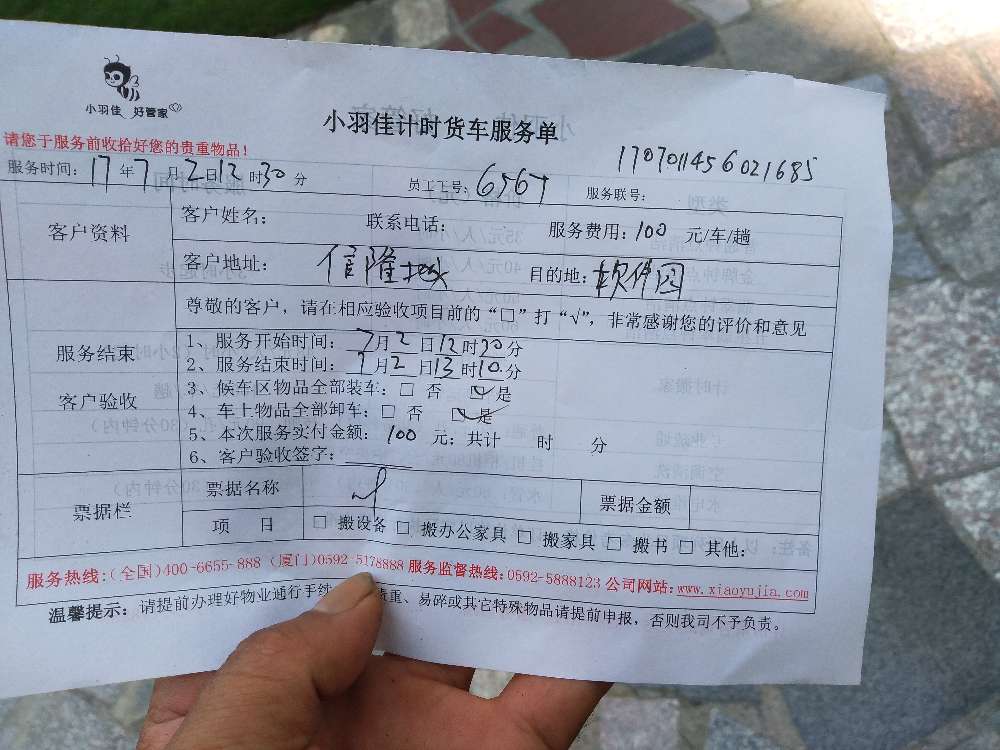 小羽佳 好管家
小羽佳计时货车服务单
请您于服务前收拾好您的贵重物品！
1707011456021685
服务时间：17年7月2日12时30分 员工工号：6567 服务联号：
客户资料
客户姓名： 联系电话： 服务费用：100 元/车/趟
客户地址：信隆城 目的地：软件园
尊敬的客户，请在相应验收项目前的“□”打“√”，非常感谢您的评价和意见
服务结束
客户验收
1、服务开始时间：7月2日12时30分
2、服务结束时间：7月2日13时10分
3、候车区物品全部装车：□ 否 ☑是
4、车上物品全部卸车：□ 否 ☑是
5、本次服务实付金额：100 元；共计 时 分
6、客户验收签字：
票据栏
票据名称 票据金额
项 目 □ 搬设备 □ 搬办公家具 □ 搬家具 □ 搬书 □ 其他：
服务热线：(全国)400-6655-888 (厦门)0592-5178888 服务监督热线：0592-5888123 公司网站：www.xiaoyujia.com
温馨提示：请提前办理好物业通行手续 重、易碎或其它特殊物品请提前申报，否则我司不予负责。